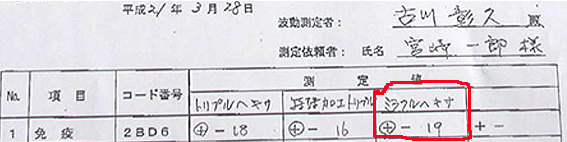 平成21年3月28日
波動測定者： 古川 彰久 殿
測定依頼者： 氏名 宮崎 一郎 様
測定値
No. 項目 コード番号 トリプルヘキサ 加工トリプル ミラクルヘキサ
1 免疫 2BD6 ⊕ - 18 ⊕ - 16 ⊕ - 19 + -